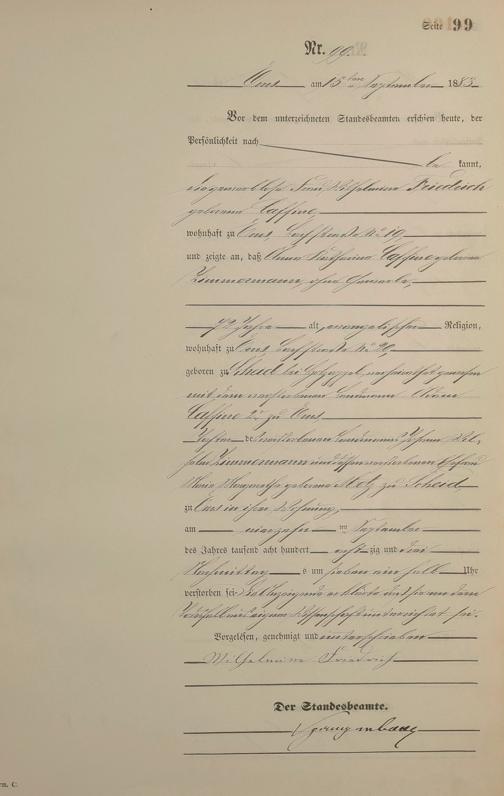 Seite 99
Nr. 99.
Ems am 15ten September 1883
Vor dem unterzeichneten Standesbeamten erschien heute, der
Persönlichkeit nach
be kannt,
die gewerblose Frau Wilhelmine Friedrich
geborene Caffine
wohnhaft zu Ems, Bachstraße No 19,
und zeigte an, daß Anna Katharina Caffine geborene
Zimmermann, ohne Gewerbe,
72 Jahre alt, evangelischer Religion,
wohnhaft zu Ems, Bachstraße No 20,
geboren zu Scheid bei Holzappel, verheirathet gewesen
mit dem verstorbenen Landmann
Caffine 2r zu Ems,
Tochter des verstorbenen Landmanns Johann Wil-
helm Zimmermann und dessen verstorbenen Ehefrau
Maria Margaretha geborene zu Scheid
zu Ems in ihrer Wohnung,
am vierzehn ten September
des Jahres tausend acht hundert acht zig und drei
Nachmittag s um sieben ein halb Uhr
verstorben sei. Die Anzeigende erklärte, daß sie von dem
Todesfall aus eigener Wissenschaft unterrichtet sei.
Vorgelesen, genehmigt und unterschrieben
Wilhelmine Friedrich
Der Standesbeamte.
rm. C.